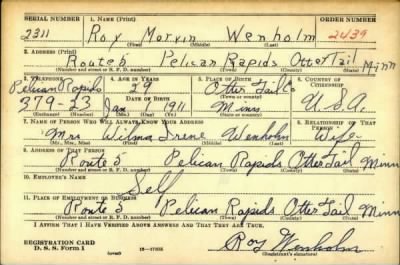 SERIAL NUMBER 1. NAME (Print) ORDER NUMBER
2311 Roy Marvin Wenholm 2439
(First) (Middle) (Last)
2. ADDRESS (Print)
Route 5 Pelican Rapids Otter Tail Minn
(Number and street or R. F. D. number) (Town) (County) (State)
3. TELEPHONE 4. AGE IN YEARS 5. PLACE OF BIRTH 6. COUNTRY OF CITIZENSHIP
Pelican Rapids 29 Otter Tail Co
DATE OF BIRTH (Town or county)
379-23 Jan 1911 Minn U.S.A.
(Exchange) (Number) (Mo.) (Day) (Yr.) (State or country)
7. NAME OF PERSON WHO WILL ALWAYS KNOW YOUR ADDRESS 8. RELATIONSHIP OF THAT PERSON
Mrs Wilma Irene Wenholm Wife
(Mr., Mrs., Miss) (First) (Middle) (Last)
9. ADDRESS OF THAT PERSON
Route 5 Pelican Rapids Otter Tail Minn
(Number and street or R. F. D. number) (Town) (County) (State)
10. EMPLOYER'S NAME
Self
11. PLACE OF EMPLOYMENT OR BUSINESS
Route 5 Pelican Rapids Otter Tail Minn
(Number and street or R. F. D. number) (Town) (County) (State)
I AFFIRM THAT I HAVE VERIFIED ABOVE ANSWERS AND THAT THEY ARE TRUE.
REGISTRATION CARD
D. S. S. Form 1 (over) Roy Wenholm
(Registrant's signature)